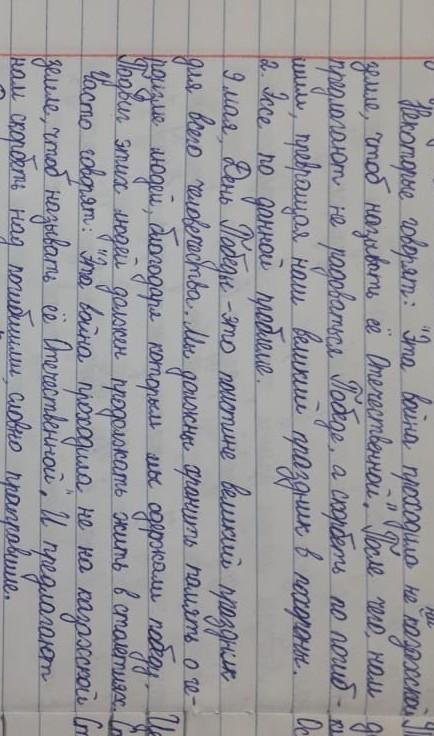 Некоторые говорят: "Эта война проходила не казахской
земле, чтоб называть её Отечественной". После чего, нам
предлагают не радоваться Победе, а скорбеть по погиб-
шим, превращая наш великий праздник в похороны.
2. Эссе по данной проблеме.
9 мая, День Победы - это поистине великий праздник
для всего человечества. Мы должны хранить память о ге-
ройзме людей, благодаря которым мы одержали победу.
Подвиг этих людей должен продолжать жить в столетиях.
Часто говорят: "Эта война проходила не на казахской
земле, чтоб называть её Отечественной". И предлагают
нам скорбеть над погибшими, словно проигравшие.